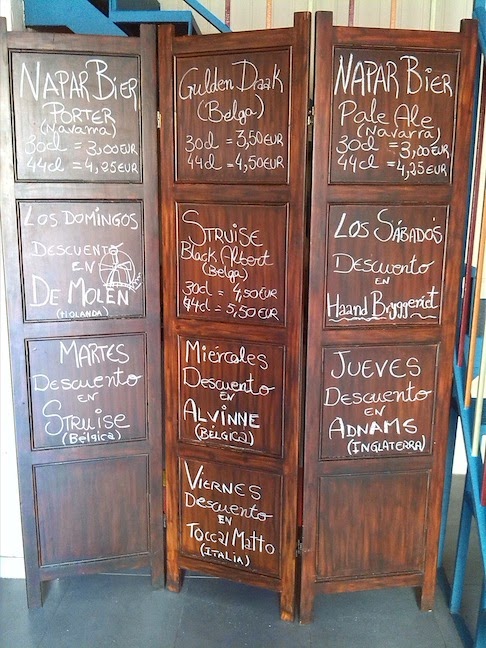 NAPAR BIER
PORTER
(Navarra)
30cl = 3,00 EUR
44cl = 4,25 EUR
LOS DOMINGOS
DESCUENTO
EN
DE MOLEN
(HOLANDA)
MARTES
DESCUENTO
EN
STRUISE
(Bélgica)
Gulden Draak
(Belga)
30cl = 3,50 EUR
44cl = 4,50 EUR
STRUISE
Black Albert
(Belga)
30cl = 4,50 EUR
44cl = 5,50 EUR
Miércoles
Descuento
EN
ALVINNE
(BÉLGICA)
VIERNES
Descuento
EN
Toccal Matto
(ITALIA)
NAPAR BIER
Pale Ale
(NAVARRA)
30cl = 3,00 EUR
44cl = 4,25 EUR
LOS SÁBADOS
DESCUENTO
EN
Haand Bryggeriet
JUEVES
DESCUENTO
EN
ADNAMS
(INGLATERRA)